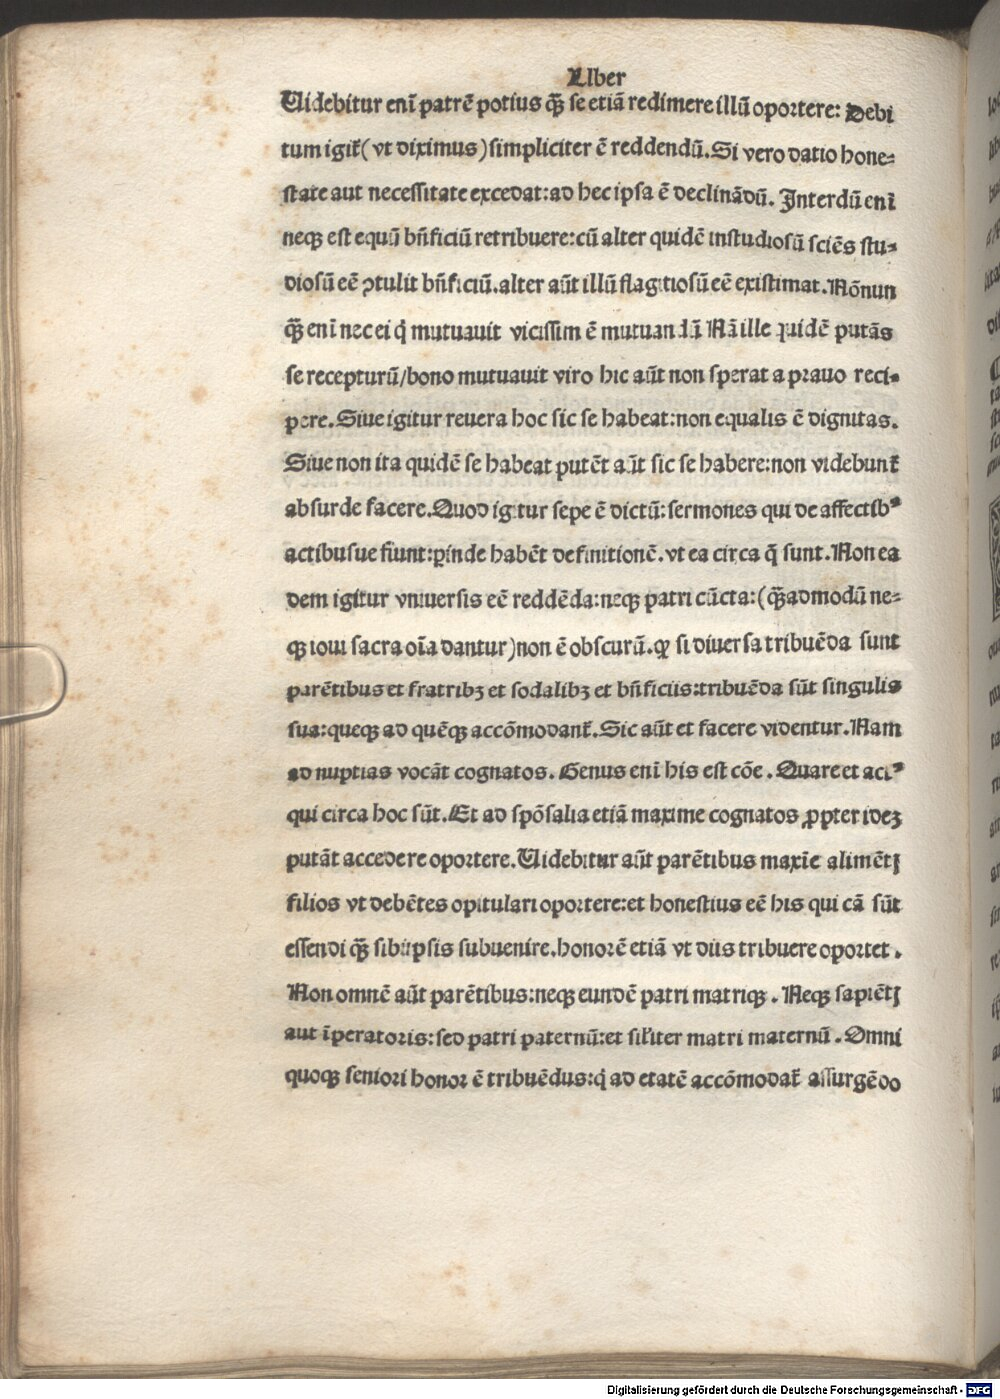 Liber
Uidebitur enī patrē potius qȝ̄ se etiā redimere illū oportere: Debi
tum igit᷑ ( vt diximus ) simpliciter ē reddendū. Si vero datio hone⸗
state aut necessitate excedat: ad hec ipsa ē declinādū. Interdū enī
neqȝ est equū bn̄ficiū retribuere: cū alter quidē instudiosū sciēs stu⸗
diosū eē ꝯtulit bn̄ficiū. alter aūt illū flagitiosū eē existimat. Nōnun
qȝ̄ enī nec ei q̇ mutuauit vicissim ē mutuandū Nā ille quidē putās
se recepturū/ bono mutuauit viro hic aūt non sperat a prauo reci⸗
pere. Siue igitur reuera hoc sic se habeat: non equalis ē dignitas.
Siue non ita quidē se habeat putēt aūt sic se habere: non videbunt᷑
absurde facere. Quod igitur sepe ē dictū: sermones qui de affectibꝰ
actibusue fiunt: ꝑinde habēt definitionē. vt ea circa q̄ sunt. Non ea
dem igitur vniuersis eē reddēda: neqȝ patri cūcta: ( qȝ̄admodū ne⸗
qȝ ioui sacra oīa dantur ) non ē obscurū. qꝛ si diuersa tribuēda sunt
parētibus et fratribȝ et sodalibȝ et bn̄ficiis: tribuēda sūt singulis
sua: queqȝ ad quēqȝ accōmodant᷑. Sic aūt et facere videntur. Nam
ad nuptias vocāt cognatos. Genus enī his est cōe. Quare et actꝰ
qui circa hoc sūt. Et ad spōsalia etiā maxime cognatos ꝓpter idez
putāt accedere oportere. Uidebitur aūt parētibus maxīe alimētj
filios vt debētes opitulari oportere: et honestius eē his qui cā sūt
essendi qȝ̄ sibiipsis subuenire. honorē etiā vt diis tribuere oportet.
Non omnē aūt parētibus: neqȝ eundē patri matriqȝ. Neqȝ sapiētj
aut īperatoris: sed patri paternū: et sil'iter matri maternū. Omni
quoqȝ seniori honor ē tribuēdus: q̇ ad etatē accōmodat᷑ assurgēdo
Digitalisierung gefördert durch die Deutsche Forschungsgemeinschaft - DFG